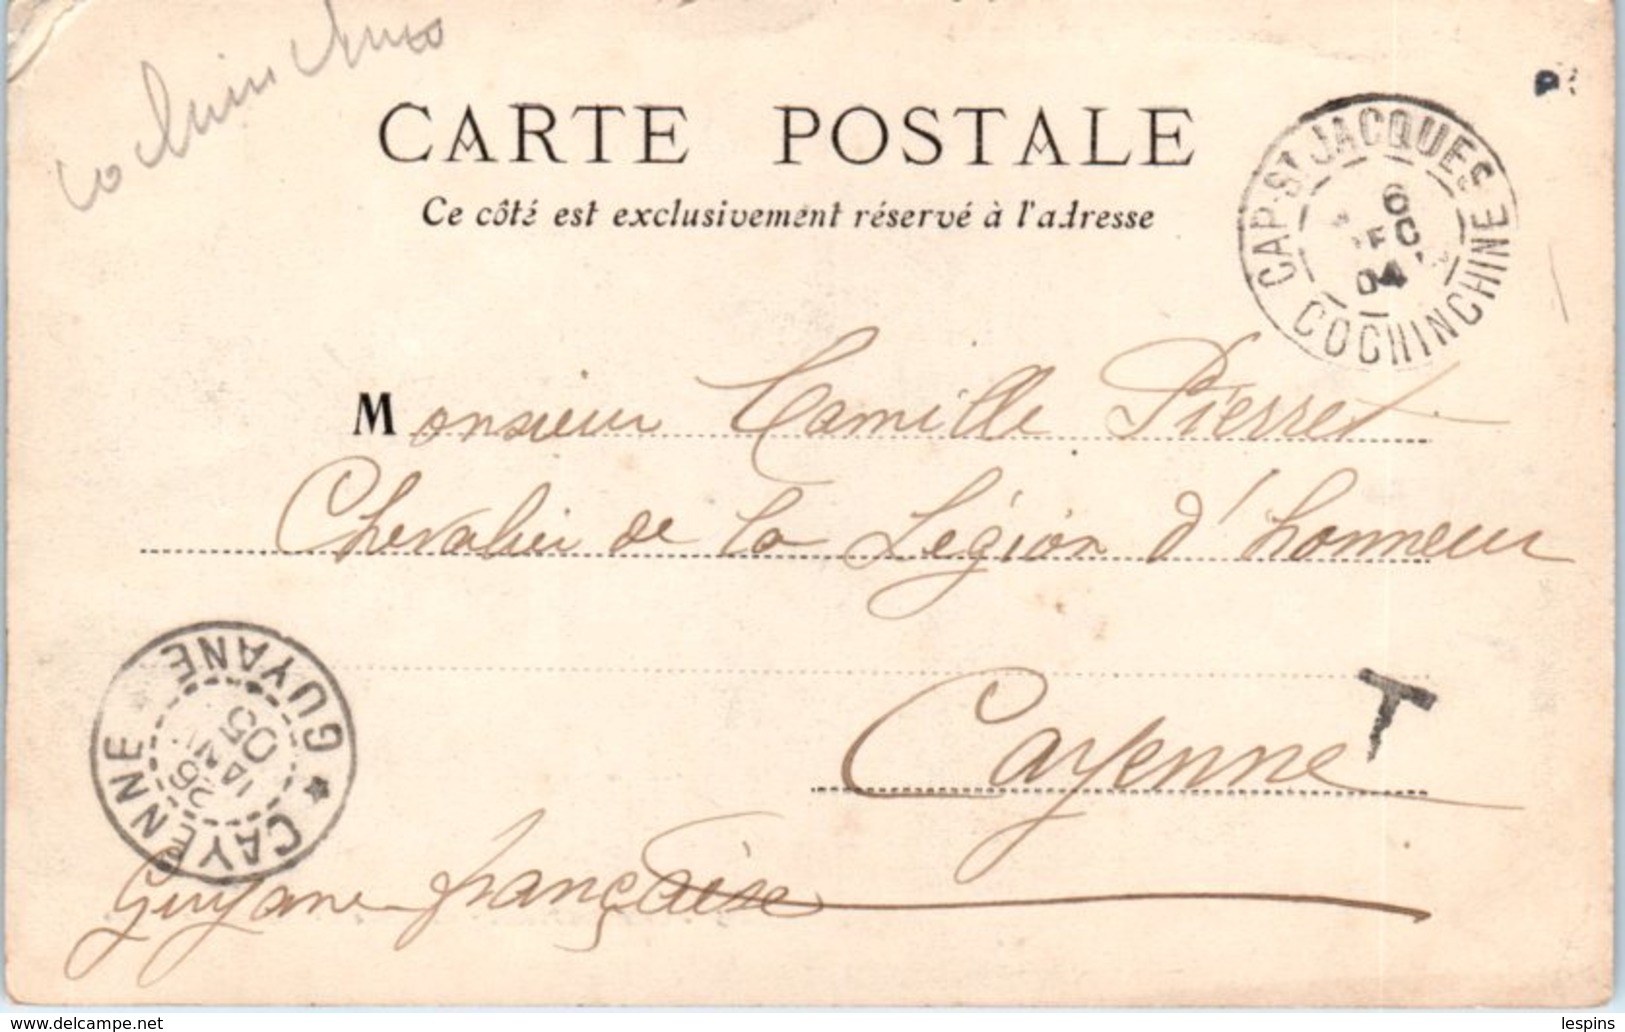 Cochinchine
CARTE POSTALE
Ce côté est exclusivement réservé à l'adresse
CAP-ST JACQUES
6
DEC
04
COCHINCHINE
Monsieur Camille Pierret
Chevalier de la Légion d'honneur
T
Cayenne
CAYENNE ★ GUYANE
26
JANV
05
Guyane française
www.delcampe.net
lespins